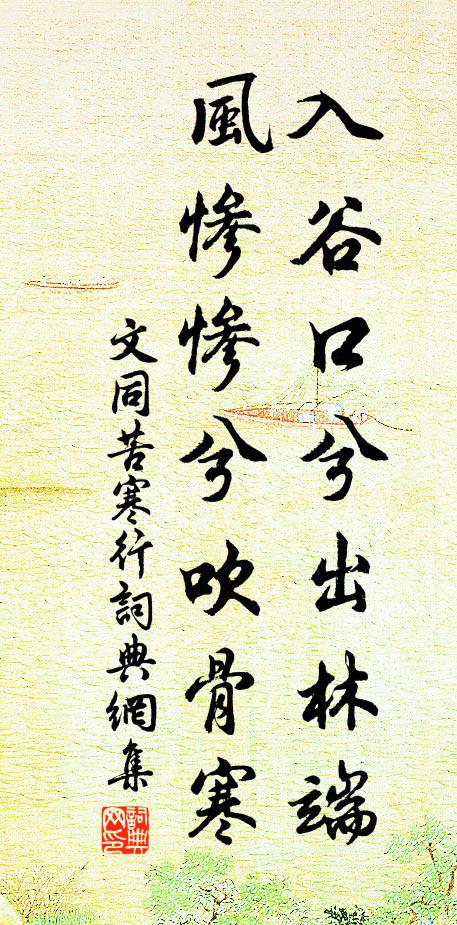 入谷口兮出林端
風慘慘兮吹骨寒
文同苦寒行詞典網集
詞典網印